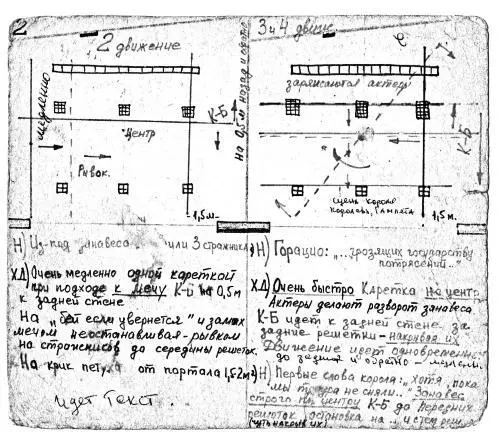 2
2 движение
медленно
Центр
Рывок.
К-Б
1,5м.
на 0,5м назад и обратно
Н) Из-под занавеса или 3 стражника
ХД) Очень медленно одной кареткой
при подходе к мечу К-й на 0,5м
к задней стене
На „бей если увернется" и замах
мечом неостанавливая-рывком
на стражников до середины решеток.
На крик петуха от портала 1,5-2м
идет Текст.
3 и 4 движ.
заряжаются актеры
К-Б
сцена короля
Королевы, Гамлета
1,5м.
Н) Горацио: „...грозящих государству
потрясений.."
ХД) Очень быстро Каретка на центр
Актеры делают разворот занавеса.
К-Б идет к задней стене за
задние решетки - накрывая их
Движение идет одновременно
до задних и обратно -
Н) Первые слова короля: „хотя пока
мы не сняли.." Занавес
строго по центру К-Б до передних
решеток остановка на
(чуть накрыв их)